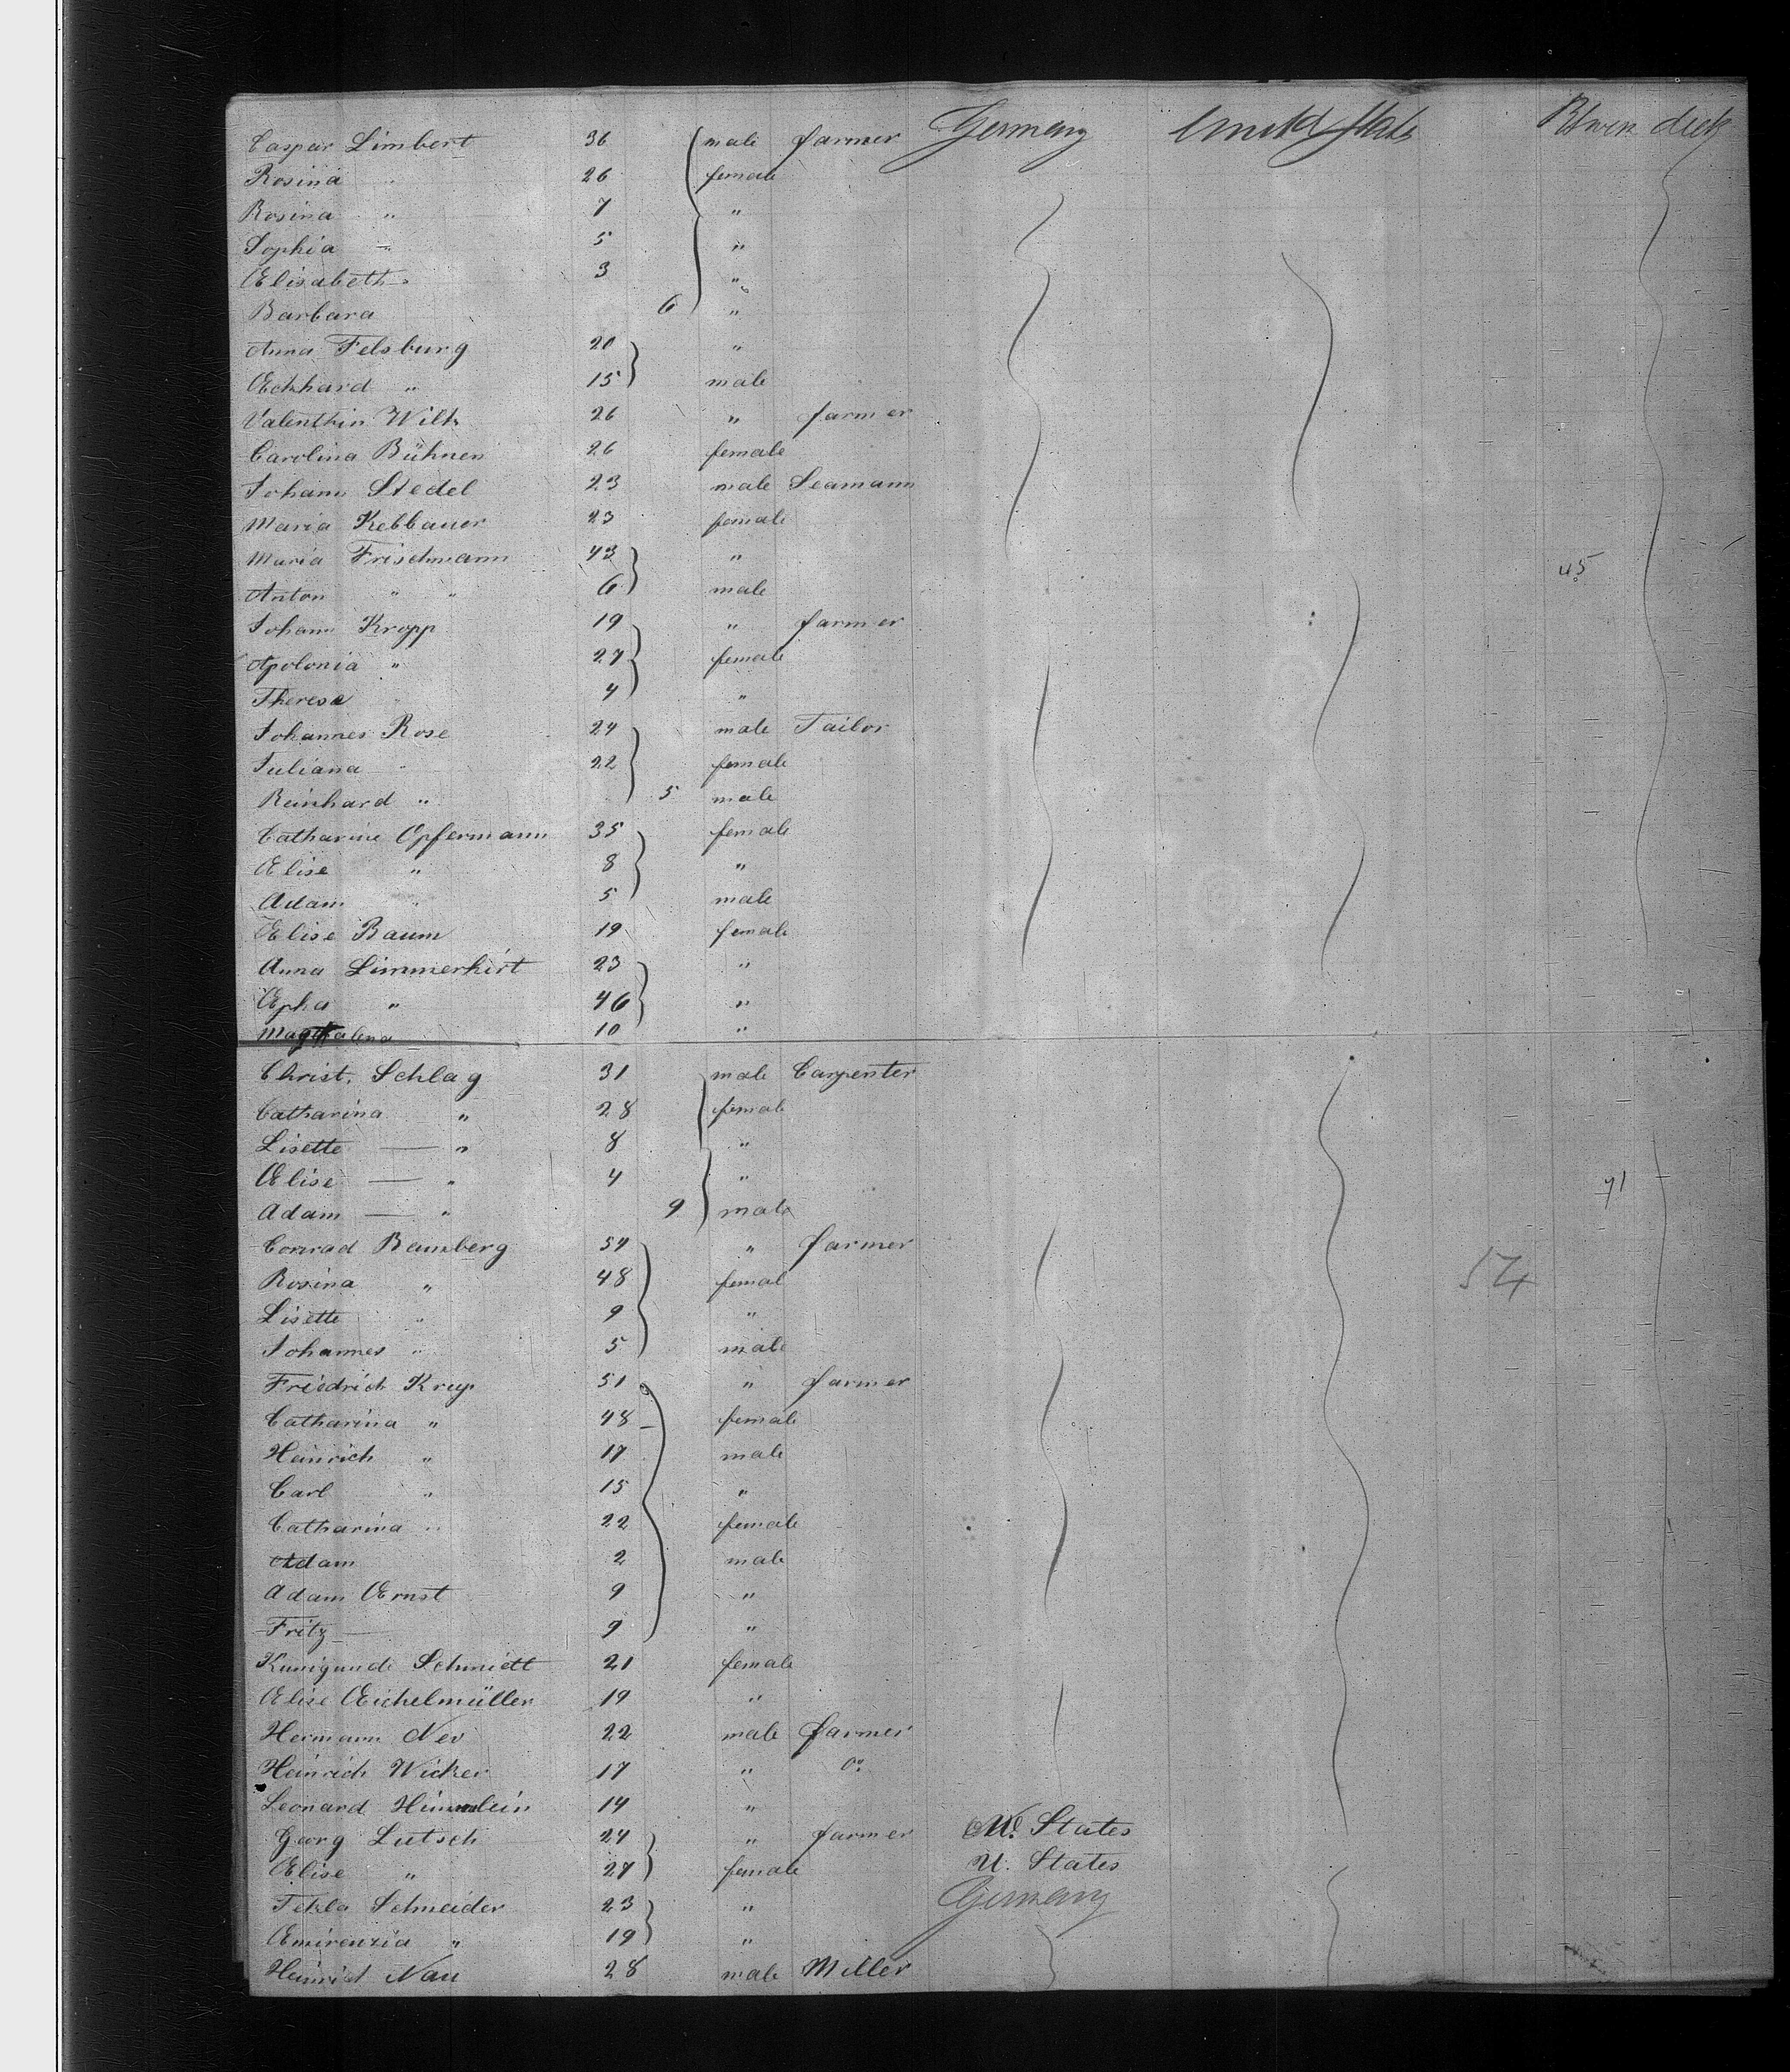 Caspar Limbert 36 male farmer Germany United States Btwen deck
Rosina " 26 female
Rosina " 7 "
Sophia " 5 "
Elisabeth " 3 "
Barbara 6 "
Anna Felsburg 20 "
Eckhard " 15 male
Valenthin Wilk 26 " farmer
Carolina Bühnen 26 female
Johann Stedel 23 male Seamann
Maria Kebbauer 23 female
Maria Frischmann 43 "
45
Anton " " 6 male
Johann Kropp 19 " farmer
Apolonia " 27 female
Theresa " 4 "
Johannes Rose 24 male Tailor
Juliana " 22 female
Reinhard " 5 male
Catharine Opfermann 35 female
Elise " 8 "
Adam " 5 male
Elise Baum 19 female
Anna Limmerhirt 23 "
Epha " 46 "
Magdalena 10 "
Christ. Schlag 31 male Carpenter
Catharina " 28 female
Lisette — " 8 "
Elise — " 4 "
71
Adam — " 9 male
Conrad Bamberg 54 " farmer
Rosina " 48 femal
54
Lisette " 9 "
Johannes " 5 male
Friedrich Krup 51 " farmer
Catharina " 48 female
Heinrich " 17 male
Carl " 15 "
Catharina " 22 female
Adam 2 male
Adam Ernst 9 "
Fritz — 9 "
Kunigunde Schmidt 21 female
Elise Eichelmüller 19 "
Hermann Ney 22 male farmer
Heinrich Wicker 17 " Do
Leonard Himmlein 14 "
Georg Lutsch 24 " farmer U. States
Elise " 27 female U. States
Tekla Schneider 23 " Germany
Emirenzia " 19 "
Heinrich Nau 28 male Miller